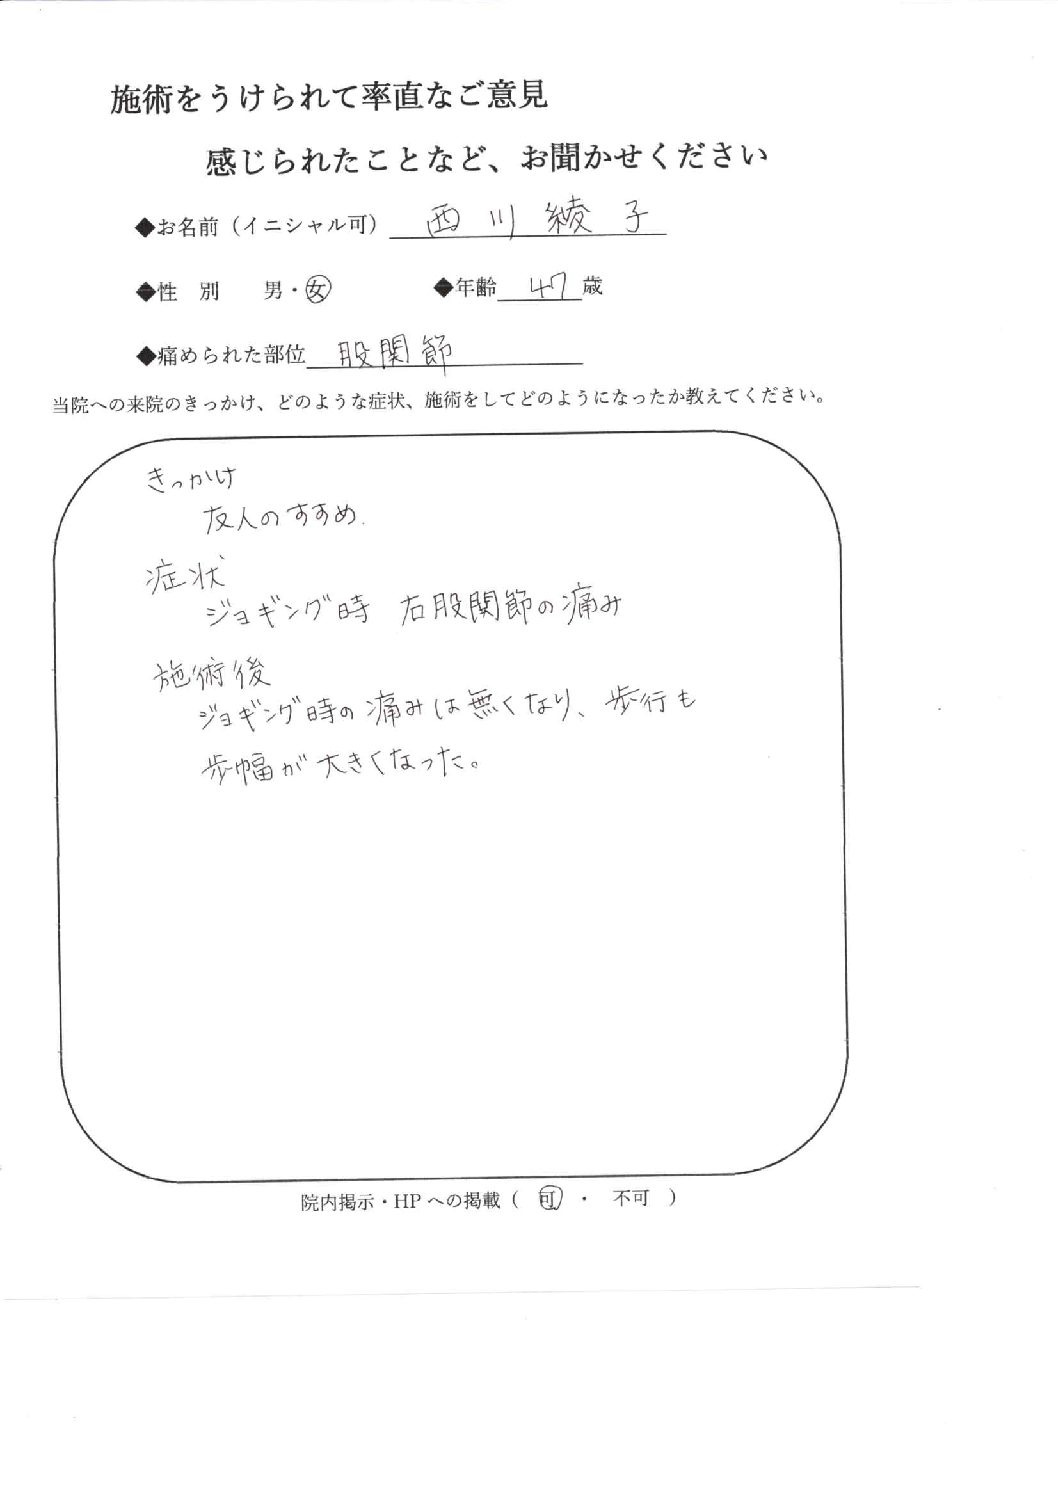 施術をうけられて率直なご意見
感じられたことなど、お聞かせください
◆お名前（イニシャル可） 西川綾子
◆性　別　　男・女　　◆年齢 47 歳
◆痛められた部位 股関節
当院への来院のきっかけ、どのような症状、施術をしてどのようになったか教えてください。
きっかけ
友人のすすめ.
症状
ジョギング時　右股関節の痛み
施術後
ジョギング時の痛みは無くなり、歩行も
歩幅が大きくなった。
院内掲示・HPへの掲載（　可　・　不可　）